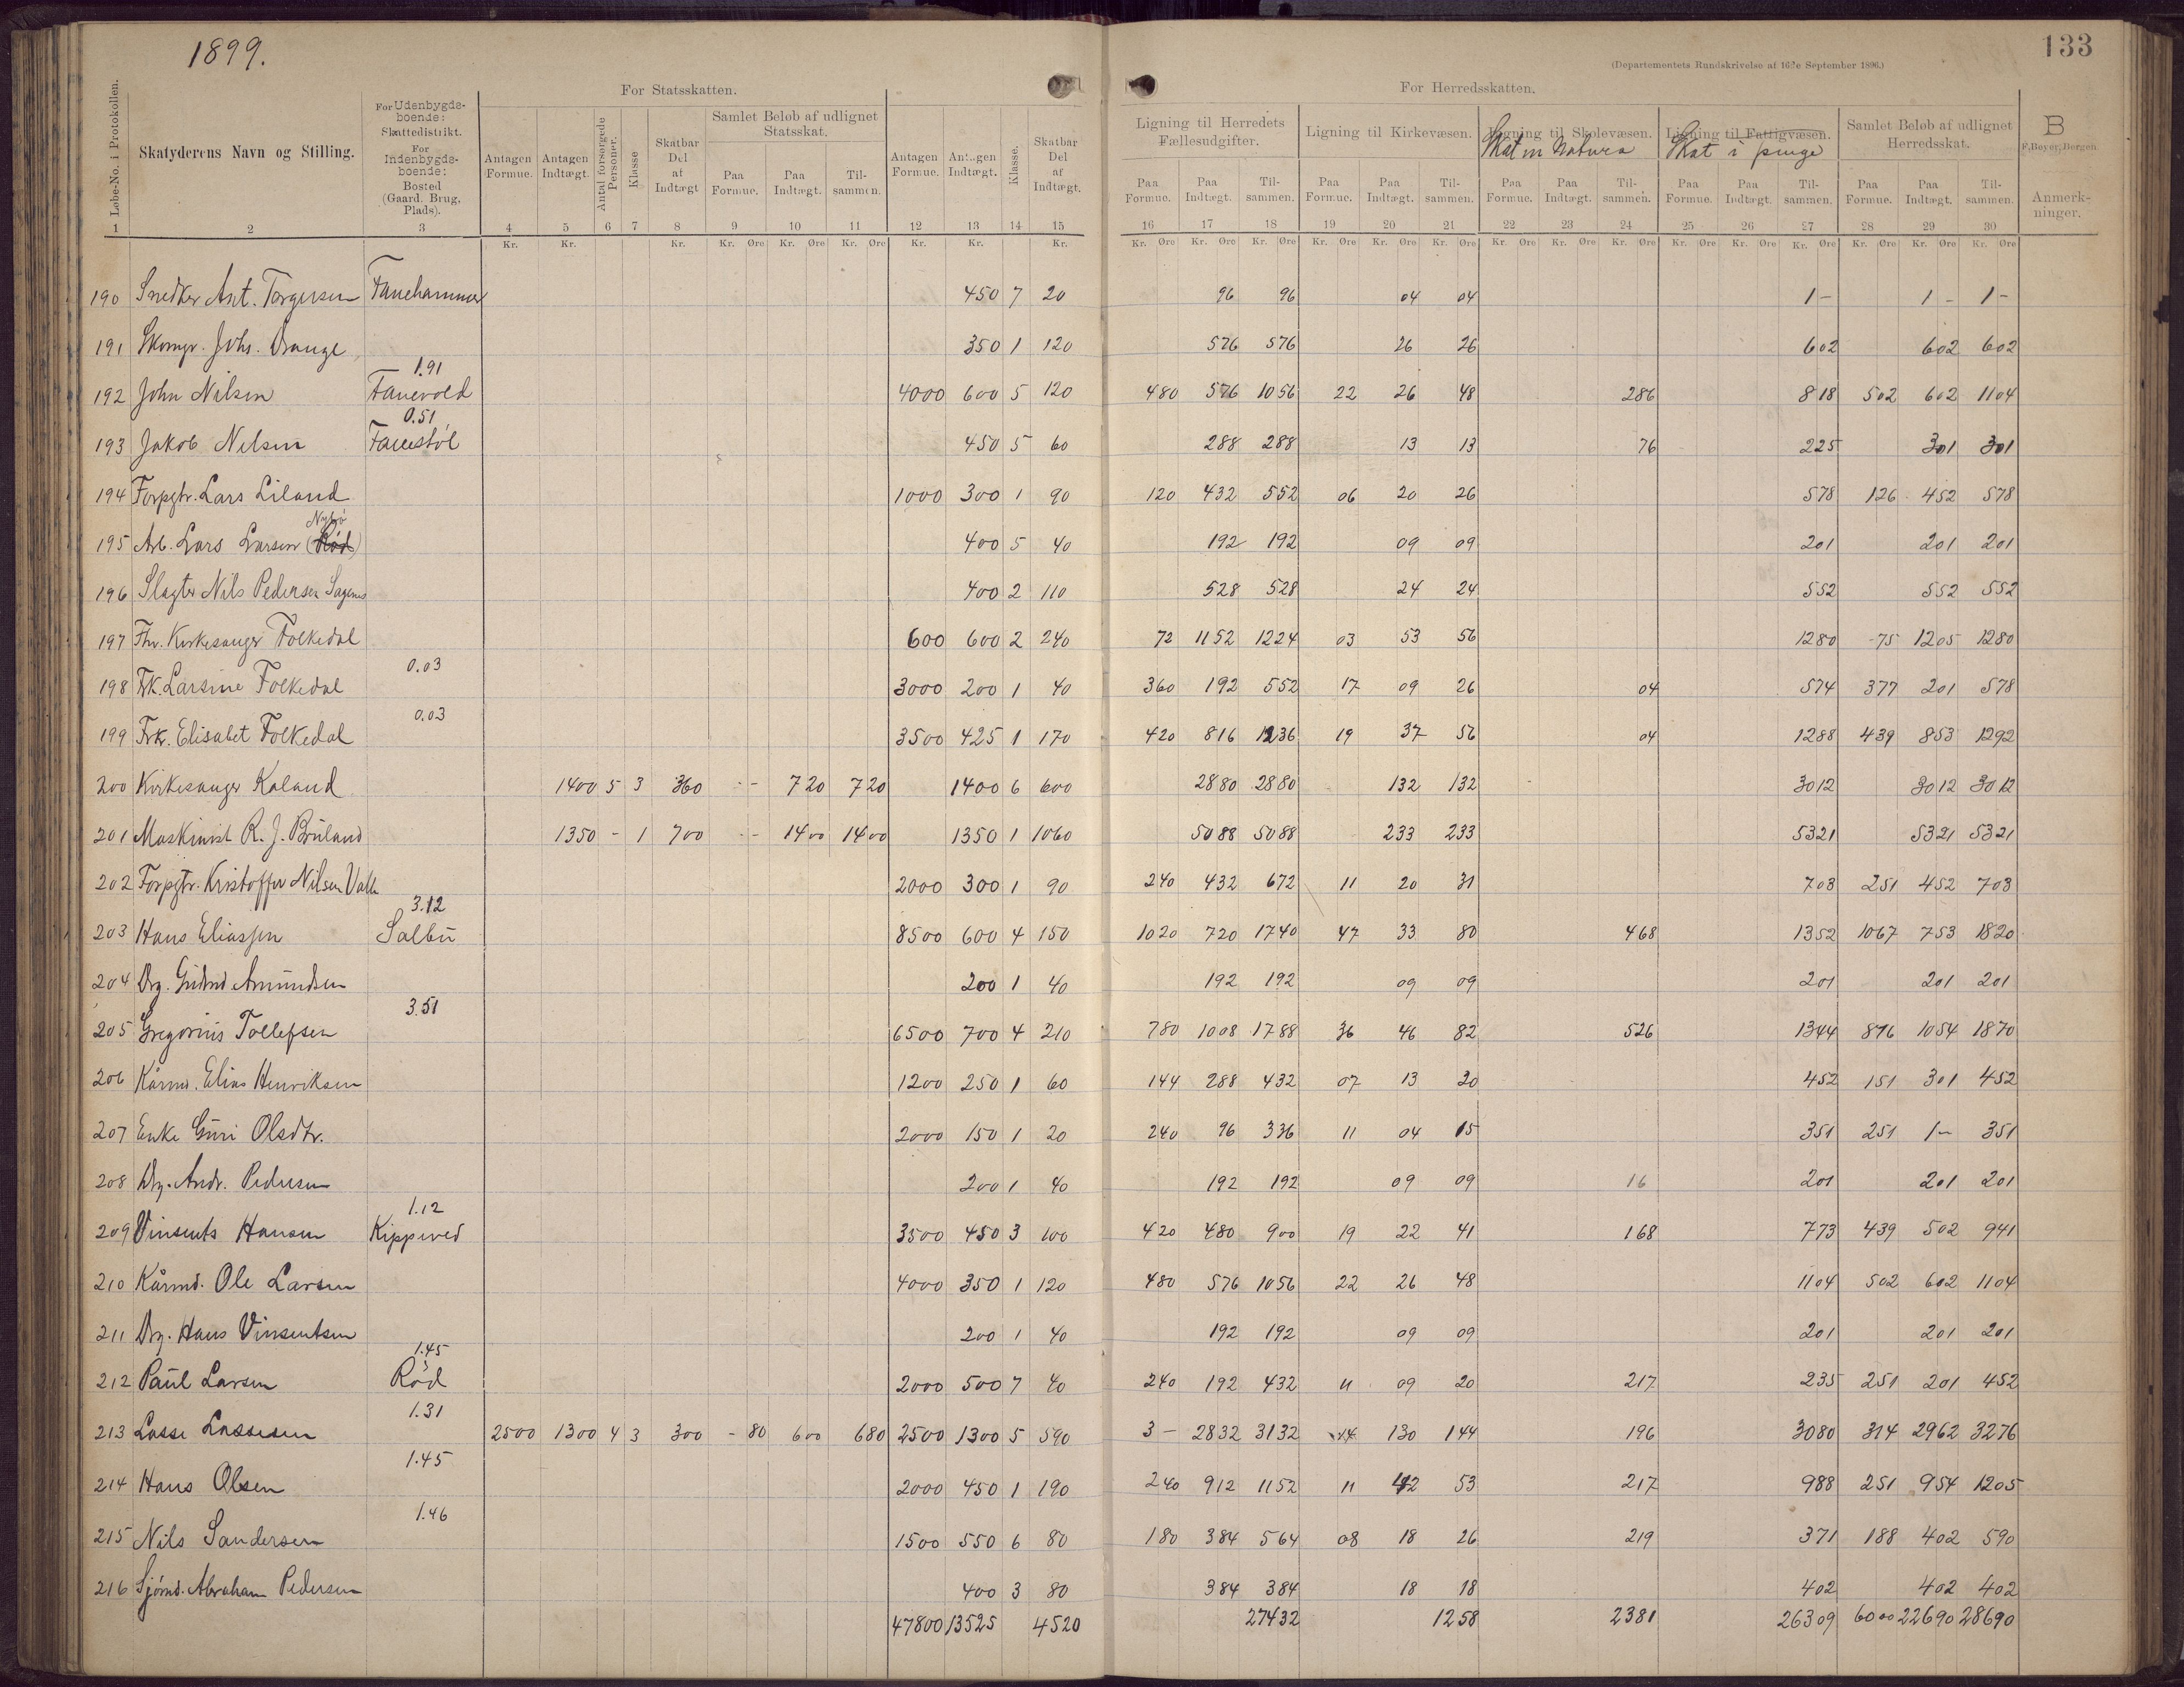 1899.
133
(Departementets Rundskrivelse af 16de September 1896.)
For Statsskatten.
For Herredsskatten.
Løbe-No. i Protokollen.
Skatyderens Navn og Stilling.
For Udenbygds-boende: Skattedistrikt. For Indenbygds-boende: Bosted (Gaard. Brug, Plads).
Antagen Formue.
Antagen Indtægt.
Antal forsørgede Personer.
Klasse
Skatbar Del af Indtægt
Samlet Beløb af udlignet Statsskat.
Paa Formue. Paa Indtægt. Til-sammen.
Antagen Formue.
Antagen Indtægt.
Klasse.
Skatbar Del af Indtægt.
Ligning til Herredets Fællesudgifter.
Ligning til Kirkevæsen.
Ligning til Skolevæsen.
Skat in Natura
Ligning til Fattigvæsen.
Skat i penge
Samlet Beløb af udlignet Herredsskat.
B
F. Beyer, Bergen
Anmerk-ninger.
Paa Formue. Paa Indtægt. Til-sammen. Paa Formue. Paa Indtægt. Til-sammen. Paa Formue. Paa Indtægt. Til-sammen. Paa Formue. Paa Indtægt. Til-sammen. Paa Formue. Paa Indtægt. Til-sammen.
1 2 3 4 5 6 7 8 9 10 11 12 13 14 15 16 17 18 19 20 21 22 23 24 25 26 27 28 29 30
Kr. Kr. Kr. Kr. Øre Kr. Øre Kr. Øre Kr. Kr. Kr. Kr. Øre Kr. Øre Kr. Øre Kr. Øre Kr. Øre Kr. Øre Kr. Øre Kr. Øre Kr. Øre Kr. Øre Kr. Øre Kr. Øre Kr. Øre Kr. Øre Kr. Øre
190 Snedker Ant. Torgersen Fanehammer 450 7 20 96 96 04 04 1- 1- 1-
191 Skomgr. Johs. Drange 350 1 120 576 576 26 26 602 602 602
1.91
192 John Nilsen Fanevold 4000 600 5 120 480 576 1056 22 26 48 286 818 502 602 1104
0.51
193 Jakob Nilsen Fanestøl 450 5 60 288 288 13 13 76 225 301 301
194 Forpgtr. Lars Liland 1000 300 1 90 120 432 552 06 20 26 578 126 452 578
195 Arb. Lars Larsen (Rød) 400 5 40 192 192 09 09 201 201 201
196 Slagter Nils Pedersen Sagenes 400 2 110 528 528 24 24 552 552 552
197 Fhv. Kirkesanger Folkedal 600 600 2 240 72 1152 1224 03 53 56 1280 75 1205 1280
0.03
198 Frk. Larsine Folkedal 3000 200 1 40 360 192 552 17 09 26 04 574 377 201 578
0.03
199 Frk. Elisabet Folkedal 3500 425 1 170 420 816 1236 19 37 56 04 1288 439 853 1292
200 Kirkesanger Kaland 1400 5 3 360 -- 720 720 1400 6 600 2880 2880 132 132 3012 3012 3012
201 Maskinist R. J. Brüland 1350 - 1 700 -- 1400 1400 1350 1 1060 5088 5088 233 233 5321 5321 5321
202 Forpgtr. Kristoffer Nilsen Valle 2000 300 1 90 240 432 672 11 20 31 703 251 452 703
3.12
203 Hans Eliassen Salbü 8500 600 4 150 1020 720 1740 47 33 80 468 1352 1067 753 1820
204 Drg. Gudmd Amundsen 200 1 40 192 192 09 09 201 201 201
3.51
205 Gregorius Tollefsen 6500 700 4 210 780 1008 1788 36 46 82 526 1344 816 1054 1870
206 Kårmd. Elias Henriksen 1200 250 1 60 144 288 432 07 13 20 452 151 301 452
207 Enke Guri Olsdtr. 2000 150 1 20 240 96 336 11 04 15 351 251 1- 351
208 Drg. Andr. Pedersen 200 1 40 192 192 09 09 16 201 201 201
1.12
209 Vinsents Hansen Kippvved 3500 450 3 100 420 480 900 19 22 41 168 773 439 502 941
210 Kårmd. Ole Larsen 4000 350 1 120 480 576 1056 22 26 48 1104 502 602 1104
211 Drg. Hans Vinsentsen 200 1 40 192 192 09 09 201 201 201
1.45
212 Paul Larsen Rød 2000 500 7 40 240 192 432 11 09 20 217 235 251 201 452
1.31
213 Lasse Lassesen 2500 1300 4 3 300 - 80 600 680 2500 1300 5 590 3- 2832 3132 14 130 144 196 3080 314 2962 3276
1.45
214 Hans Olsen 2000 450 1 190 240 912 1152 11 42 53 217 988 251 954 1205
1.46
215 Nils Sandersen 1500 550 6 80 180 384 564 08 18 26 219 371 188 402 590
216 Sjømd. Abraham Pedersen 400 3 80 384 384 18 18 402 402 402
47800 13525 4520 27432 1258 2381 26309 6000 22690 28690